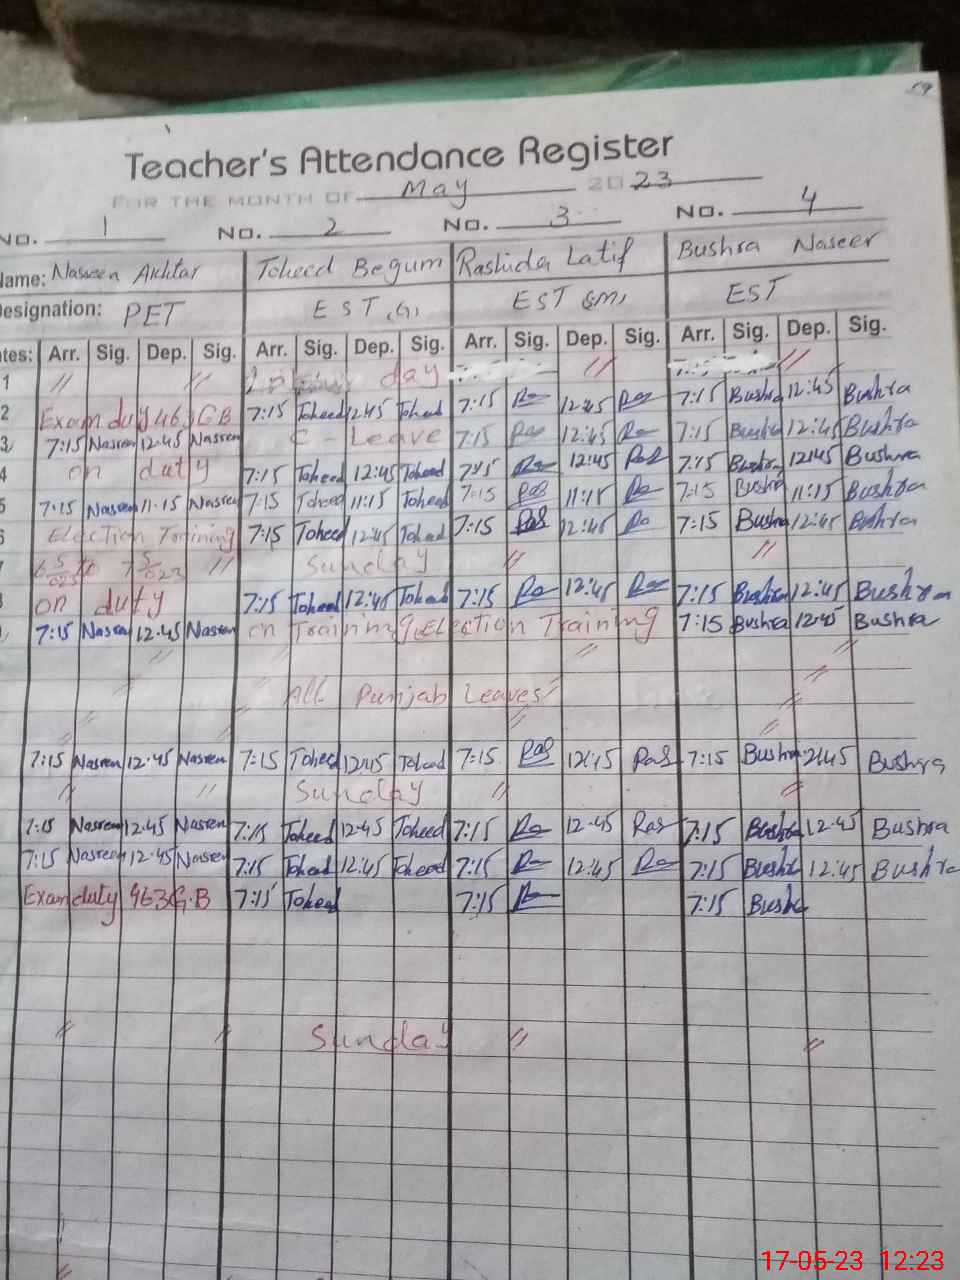 59
Teacher's Attendance Register
FOR THE MONTH OF May 2023
No. 1 No. 2 No. 3 No. 4
Name: Nasreen Akhtar Toheed Begum Rashida Latif Bushra Naseer
Designation: PET EST (G) EST (SM) EST
Dates: Arr. Sig. Dep. Sig. Arr. Sig. Dep. Sig. Arr. Sig. Dep. Sig. Arr. Sig. Dep. Sig.
1 // // day // //
2 Exam duty 463 GB 7:15 Toheed 12:45 Toheed 7:15 12:45 7:15 Bushra 12:45 Bushra
3 7:15 Nasreen 12:45 Nasreen C-Leave 7:15 12:45 7:15 Bushra 12:45 Bushra
4 on duty 7:15 Toheed 12:45 Toheed 7:15 12:45 Ras 7:15 Bushra 12:45 Bushra
5 7:15 Nasreen 11:15 Nasreen 7:15 Toheed 11:15 Toheed 7:15 Ras 11:15 7:15 Bushra 11:15 Bushra
6 Election Training 7:15 Toheed 12:45 Toheed 7:15 Ras 12:45 7:15 Bushra 12:45 Bushra
7 // Sunday // //
8 on duty 7:15 Toheed 12:45 Toheed 7:15 12:45 7:15 Bushra 12:45 Bushra
7:15 Nasreen 12:45 Nasreen on Training Election Training 7:15 Bushra 12:45 Bushra
// // //
All Punjab Leaves
7:15 Nasreen 12:45 Nasreen 7:15 Toheed 12:45 Toheed 7:15 Ras 12:45 Ras 7:15 Bushra 12:45 Bushra
// // Sunday // //
7:15 Nasreen 12:45 Nasreen 7:15 Toheed 12:45 Toheed 7:15 12:45 Ras 7:15 Bushra 12:45 Bushra
7:15 Nasreen 12:45 Nasreen 7:15 Toheed 12:45 Toheed 7:15 12:45 7:15 Bushra 12:45 Bushra
Exam duty 463 G.B 7:15 Toheed 7:15 7:15 Bushra
// // Sunday // //
17-05-23 12:23